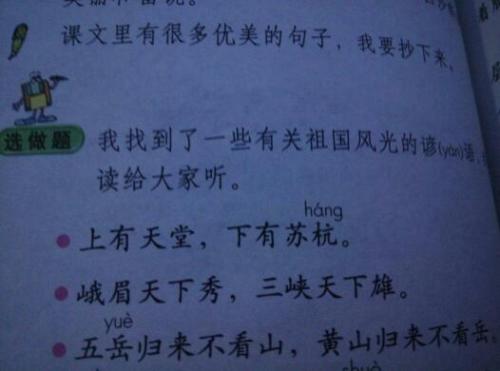 课文里有很多优美的句子，我要抄下来。
选做题
我找到了一些有关祖国风光的谚(yàn)语，
读给大家听。
háng
上有天堂，下有苏杭。
峨眉天下秀，三峡天下雄。
yuè
五岳归来不看山，黄山归来不看岳。